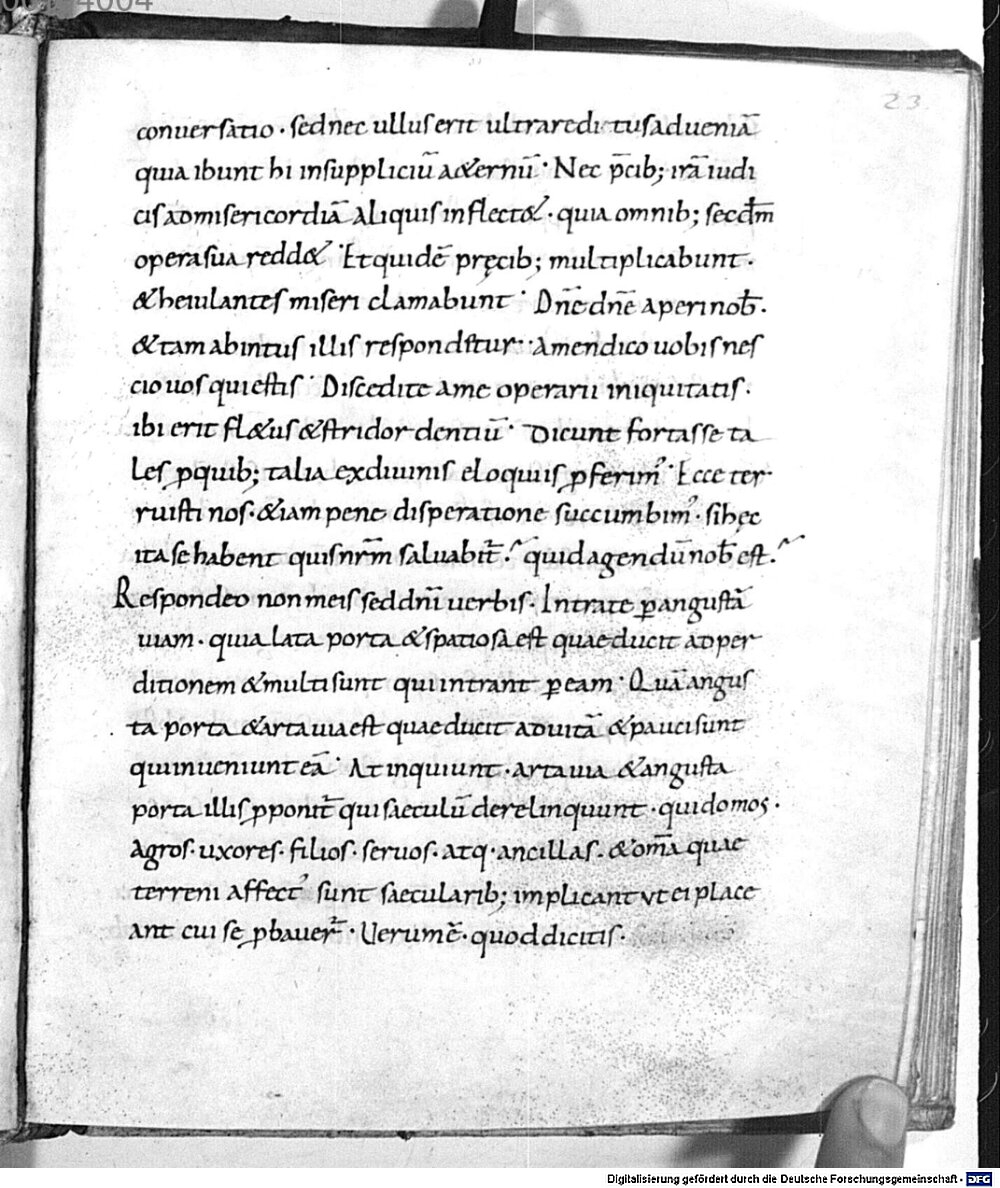 23
conuersatio · sed nec ullus erit ultra redi tus adueniā
quia ibunt hi in suppliciū a&ernū · Nec p̄cib; irā iudi
cis ad misericordiā aliquis inflect& · quia omnib; secdm̄
opera sua redd& · Et quidē pręcib; multiplicabunt ·
& heiulantes miseri clamabunt · Dn̄e dn̄e aperi nob̄ ·
& tam abintus illis respondetur · Amen dico uobis nes
cio uos qui estis · Discedite a me operarii iniquitatis ·
ibi erit fl&us & stridor dentiū · Dicunt fortasse ta
les ꝓ quib; talia ex diuinis eloquiis ꝓferimꝰ · Ecce ter
ruisti nos · & iam pene disperatione succumbimꝰ · si hęc
ita se habent quis nr̄m saluabit̄ ? quid agendū nob̄ est ?
Respondeo non meis sed dn̄i uerbis · Intrate ꝑ angustā
uiam · quia lata porta & spatiosa est quae ducit ad per
ditionem & multi sunt qui intrant ꝑ eam · Quā angus
ta porta & arta uia est quae ducit ad uitā & pauci sunt
qui inueniunt eā · At inquiunt · arta uia & angusta
porta illis ꝓponit̄ qui saeculū derelinquunt · qui domos ·
Agros · uxores · filios · seruos · atq · ancillas · & om̄a quae
terreni affectꝰ sunt saecularib; implicant ut ei place
ant cui se ꝓbauer̄ · Uerum ē · quod dicitis ·
Digitalisierung gefördert durch die Deutsche Forschungsgemeinschaft · DFG